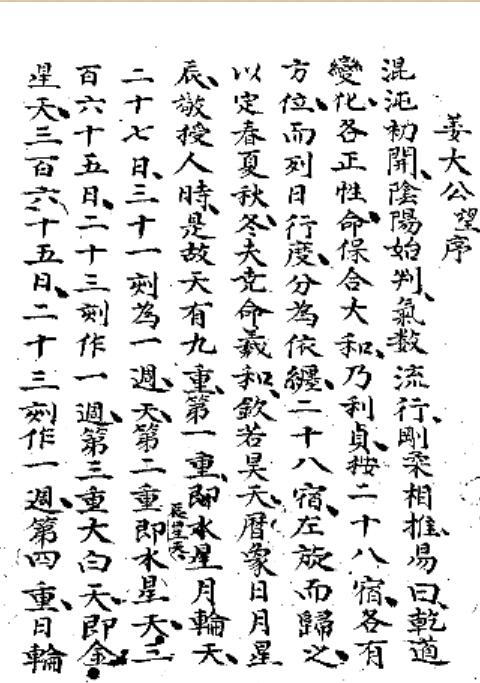 姜大公望序
混沌初開、陰陽始判、氣数流行、剛柔相推、易曰、乾道
變化、各正性命、保合大和、乃利貞、按二十八宿、各有
方位、而列日行度、分為依纏、二十八宿、左旋而歸之、
以定春夏秋冬、夫尭命羲和、欽若昊天、曆象日月星
辰、敬授人時、是故天有九重、第一重、即水星月輪天、
辰星天
二十七日、三十一刻為一週、天、第二重即水星天、三
百六十五日、二十三刻作一週、第三重大白天、即金
星天、三百六十五日、二十三刻作一週、第四重、日輪